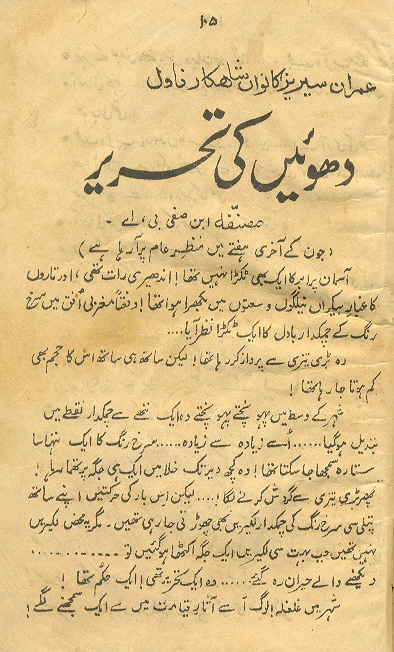 ۱۰۵
عمران سیریز کا نواں شاھکار ناول
دھوئیں کی تحریر
مصنفہ ابن صفی بی، اے
(جون کے آخری ہفتے میں منظر عام پر آ رہا ہے)
آسمان پر ابر کا ایک بھی ٹکڑا نہیں تھا! اندھیری رات تھی، اور تاروں
کا غبار بیکراں نیلگوں وسعتوں میں بکھرا ہوا تھا! دفعتاً مغربی افق میں سرخ
رنگ کے چمکدار بادل کا ایک ٹکڑا نظر آیا....
وہ بڑی تیزی سے پرواز کر رہا تھا! لیکن ساتھ ہی ساتھ اس کا حجم بھی
کم ہوتا جا رہا تھا!
شہر کے وسط میں پہونچتے پہونچتے وہ ایک ننھے سے چمکدار نقطے میں
تبدیل ہو گیا...... اُسے زیادہ سے زیادہ..... سرخ رنگ کا ایک تنہا سا
ستارہ سمجھا جا سکتا تھا! وہ کچھ دیر تک خلا میں ایک ہی جگہ پر تھما رہا!
پھر بڑی تیزی سے گردش کرنے لگا!.... لیکن اس بار کی حرکتیں اپنے ساتھ
پتلی سی سرخ رنگ کی چمکدار لکیریں بھی چھوڑتی جا رہی تھیں۔ مگر یہ محض لکیریں
نہیں تھیں جب بہت سی لکیریں ایک جگہ اکٹھا ہو گئیں تو ............
دیکھنے والے حیران رہ گئے...... وہ ایک تحریر تھی! ایک حکم تھا!
شہر میں غلغلہ! لوگ اُسے آثار قیامت میں سے ایک سمجھنے لگے!